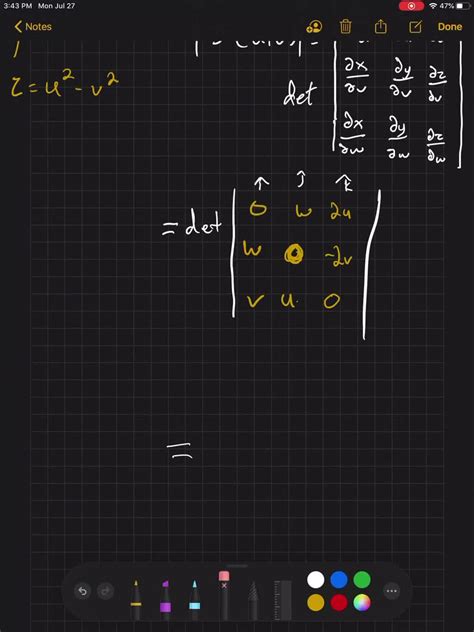 3:43 PM Mon Jul 27
47%
Notes
Done
z = u² - v²
det
∂x/∂v ∂y/∂v ∂z/∂v
∂x/∂w ∂y/∂w ∂z/∂w
= det
î ĵ k̂
0 w 2u
w 0 -2v
v u 0
=